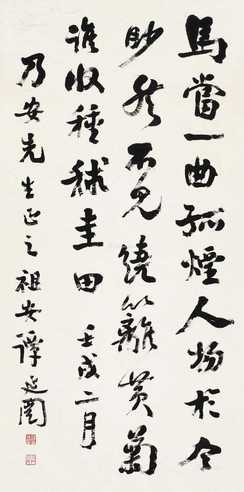 馬當一曲孤煙人物於今
眇然不見繞籬黃菊
誰收種秫圭田　壬戌二月
乃安先生正之　祖安譚延闓